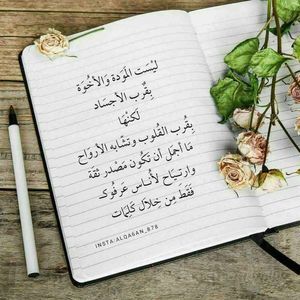 ليْسَت المَودة وَالأخُوَة
بِقُرب الأجسَاد
لَكنهَا
بِقُرب القلوب وتشَابه الأروَاح
مَا أجمَل أن تكُون مَصْدر ثقة
وارتيَاح لأنَاس عَرفُوك
فَقَط مِن خلَال كَلِمَات
INSTA:ALQA6AN_878